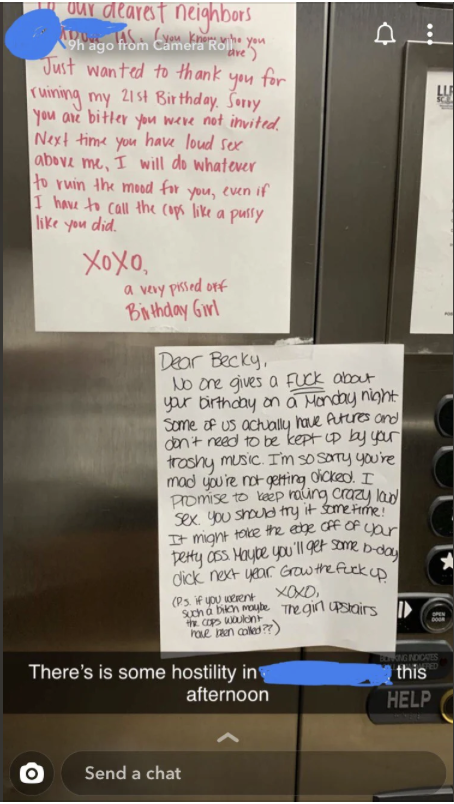 To our dearest neighbors
above us, (you know who you are)
9h ago from Camera Roll
Just wanted to thank you for
ruining my 21st Birthday. Sorry
you are bitter you were not invited.
Next time you have loud sex
above me, I will do whatever
to ruin the mood for you, even if
I have to call the cops like a pussy
like you did.
XOXO,
a very pissed off
Birthday Girl
Dear Becky,
No one gives a FUCK about
your birthday on a Monday night
Some of us actually have futures and
don't need to be kept up by your
trashy music. I'm so sorry you're
mad you're not getting dicked. I
promise to keep having crazy loud
sex. You should try it sometime!
It might take the edge off of your
petty ass. Maybe you'll get some b-day
dick next year. Grow the fuck up.
XOXO,
The girl upstairs
(P.s. if you weren't
such a bitch maybe
the cops wouldn't
have been called??)
OPEN
DOOR
HELP
There's is some hostility in this
afternoon
Send a chat